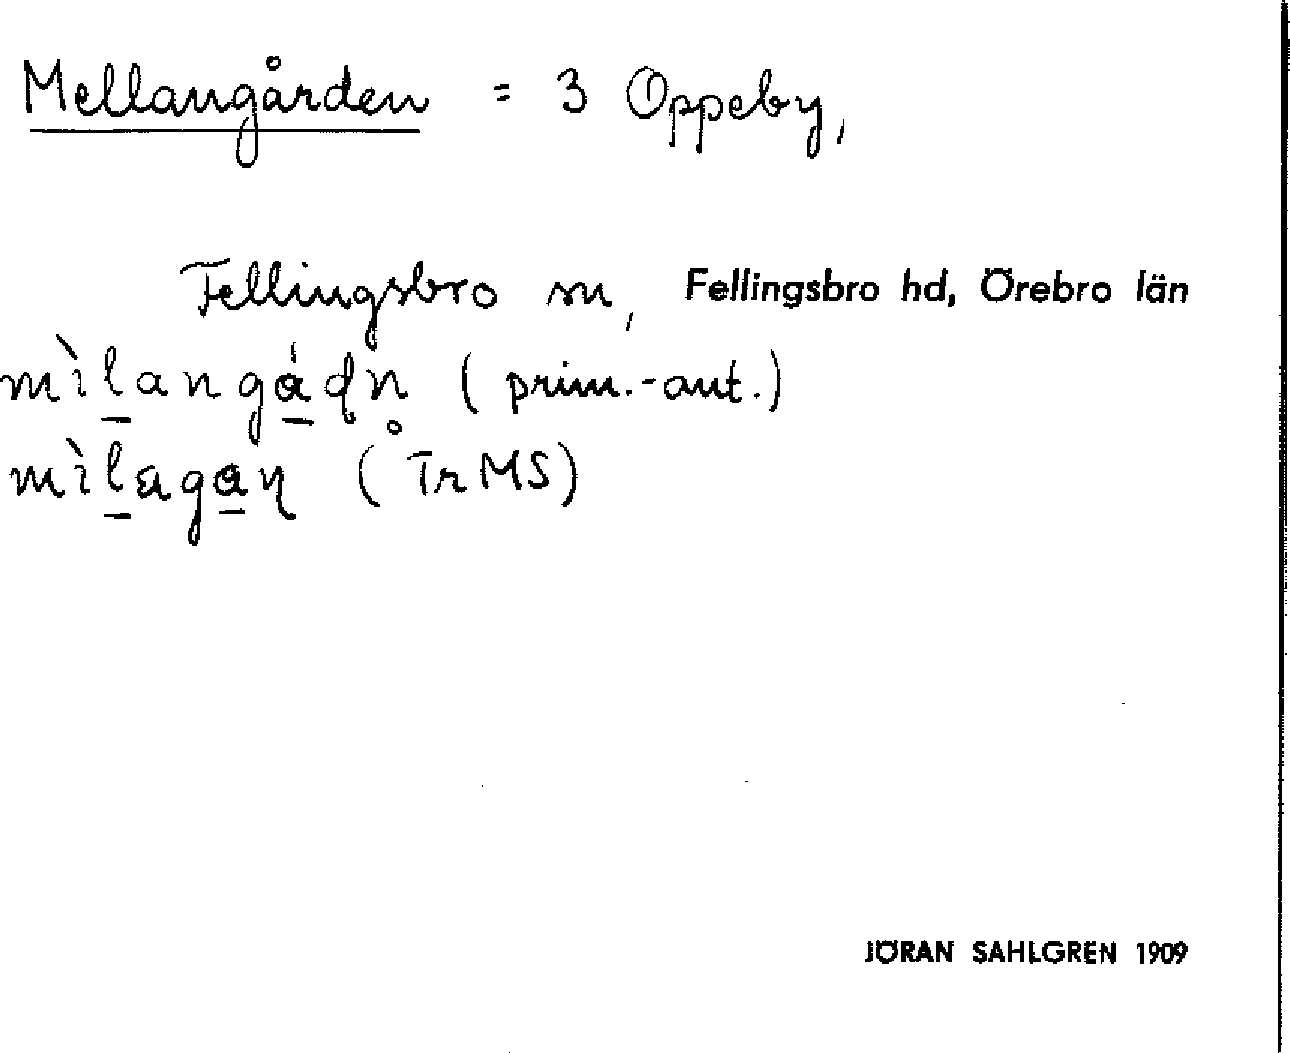 Mellangården = 3 Oppeby,
Fellingsbro sn, Fellingsbro hd, Örebro län
mìlangådn (prim.-aut.)
mìlagan (TrMS)
JÖRAN SAHLGREN 1909